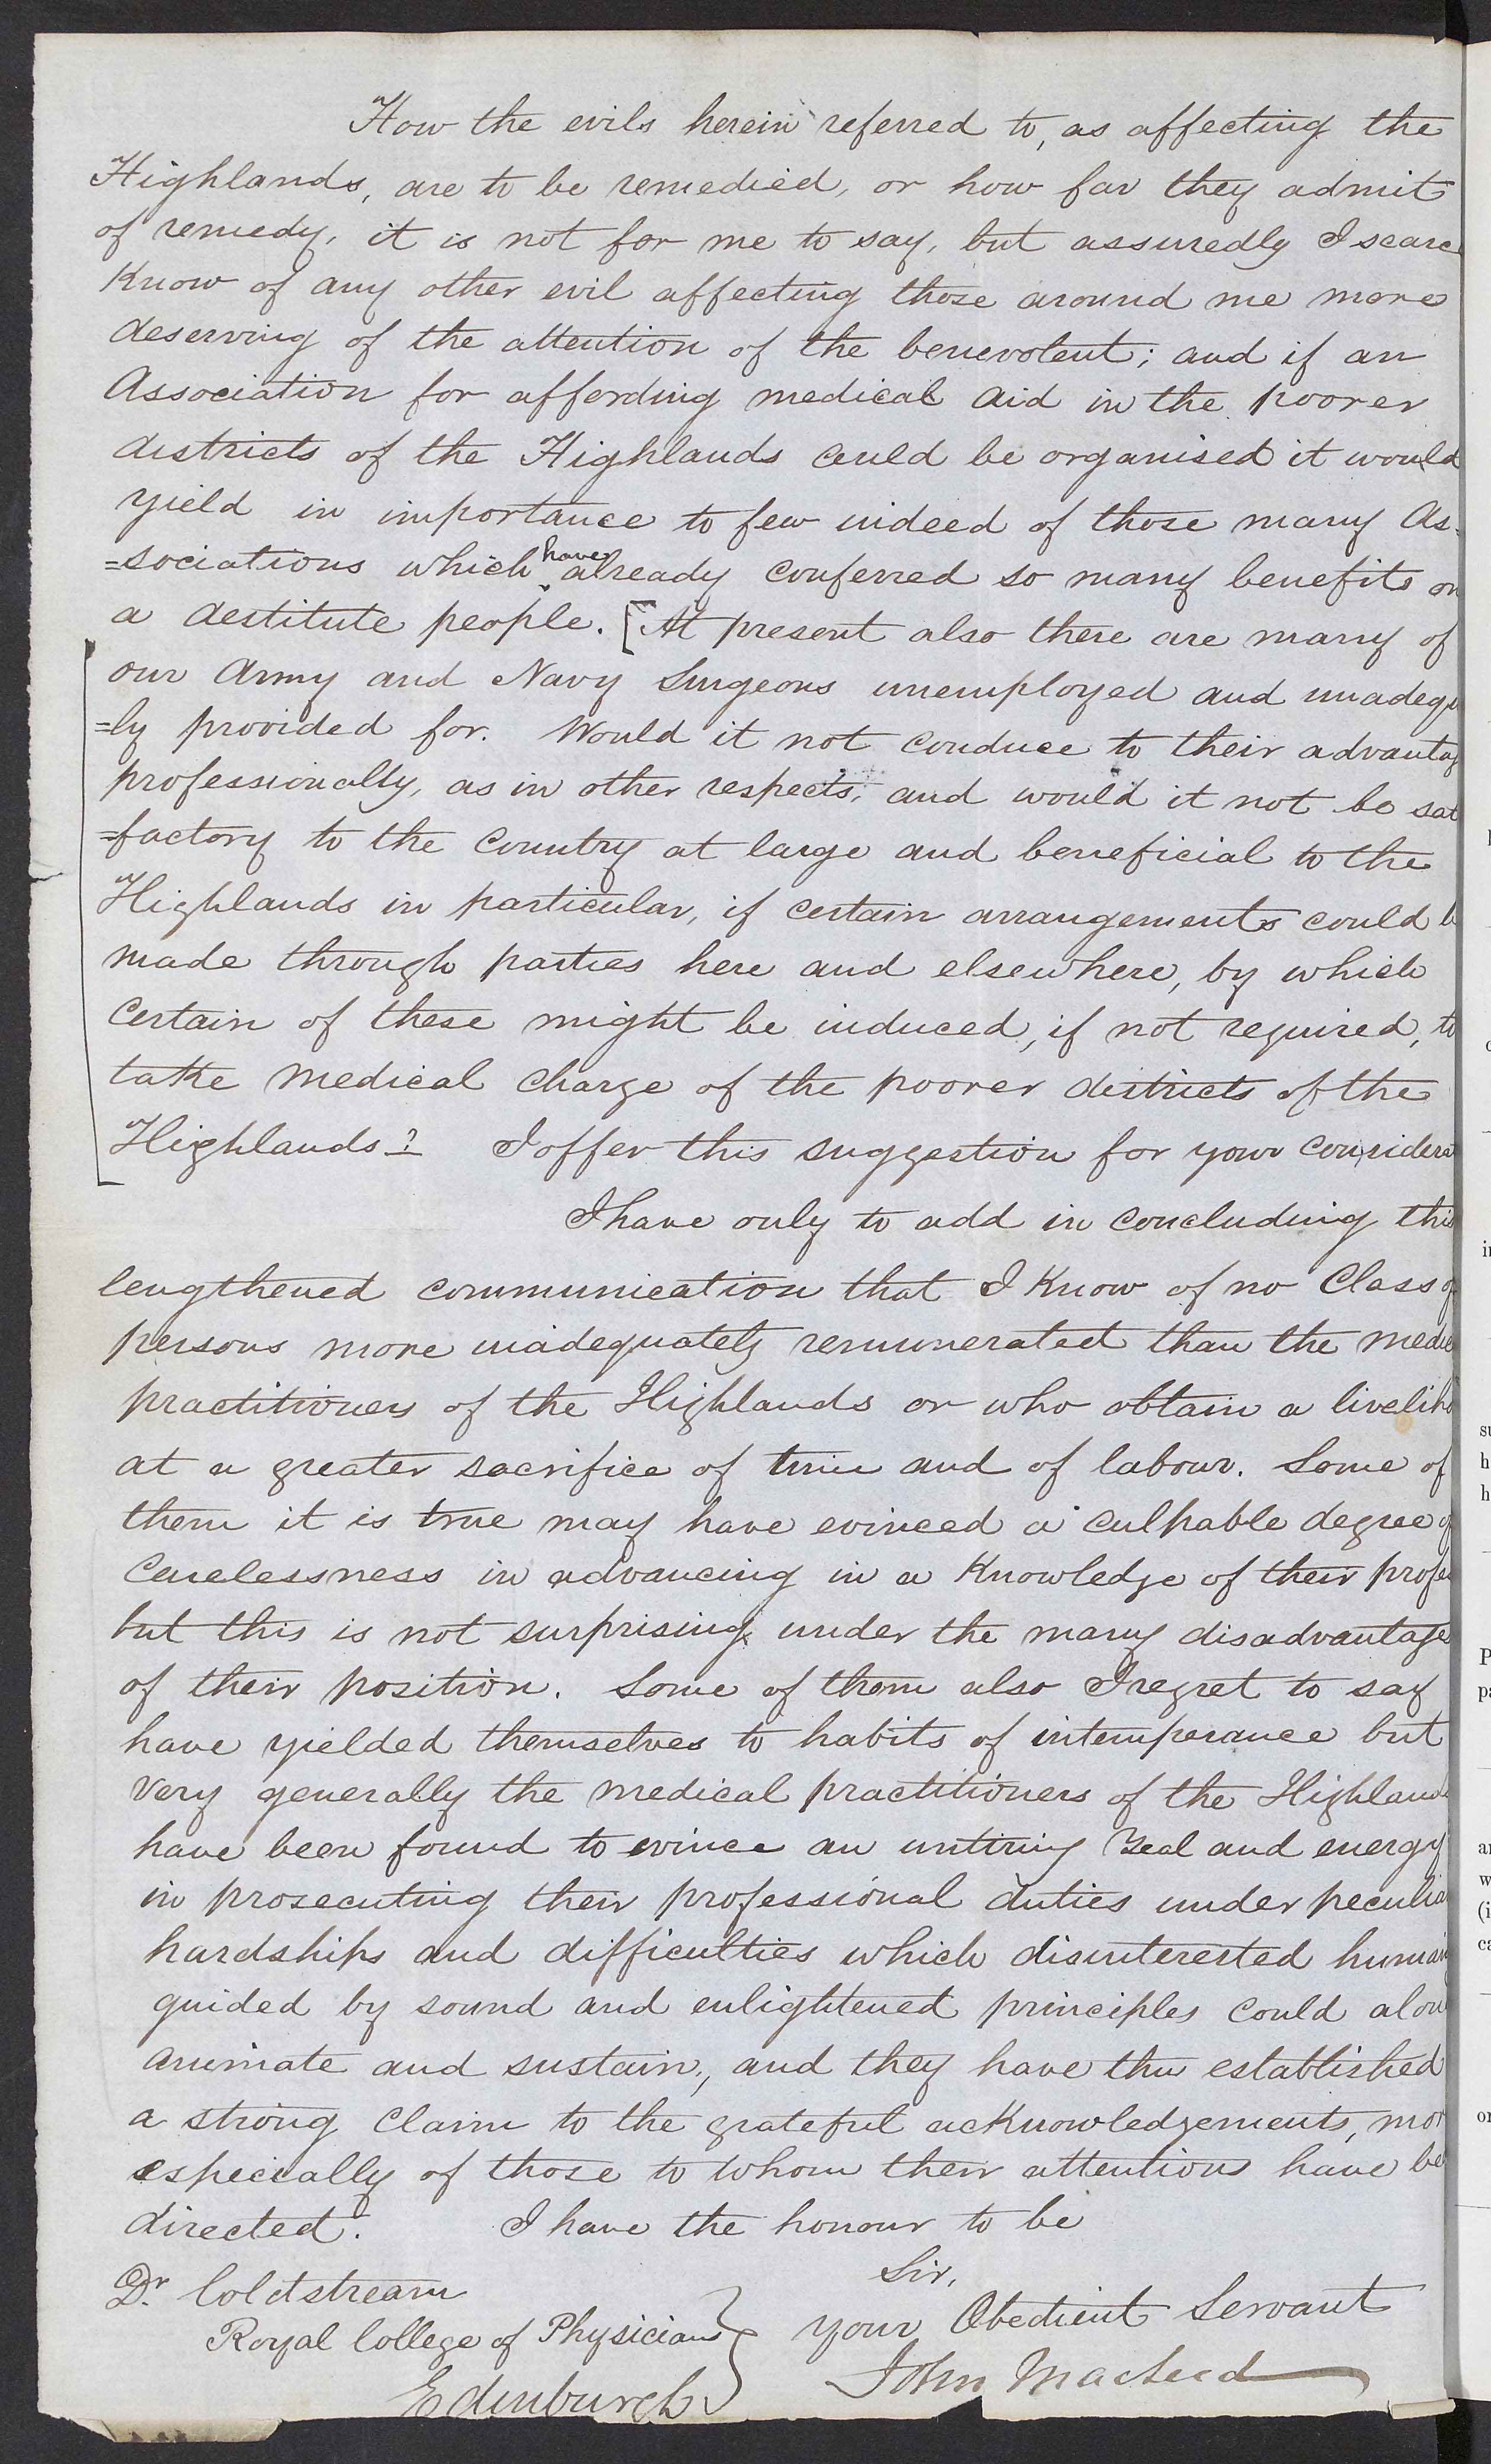 How the evils herein referred to, as affecting the
Highlands, are to be remedied, or how far they admit
of remedy, it is not for me to say, but assuredly I scarce
Know of any other evil affecting those around me more
deserving of the attention of the benevolent; and if an
Association for affording medical aid in the poorer
districts of the Highlands could be organised it would
yield in importance to few indeed of those many As=
=sociations which have already conferred so many benefits on
a destitute people. [At present also there are many of
our Army and Navy Surgeons unemployed and unadequ
=ly provided for. Would it not conduce to their advantag
professionally, as in other respects, and would it not be sat
=factory to the Country at large and beneficial to the
Highlands in particular, if certain arrangements could b
made through parties here and elsewhere, by which
Certain of these might be induced, if not required, to
take medical charge of the poorer districts of the
Highlands? I offer this suggestion for your considera
I have only to add in concluding this
lengthened communication that I Know of no Class of
persons more inadequately remunerated than the medic
practitioners of the Highlands or who obtain a liveliho
at a greater sacrifice of time and of labour. Some of
them it is true may have evinced a culpable degree of
Carelessness in advancing in a Knowledge of their profes
but this is not surprising under the many disadvantages
of their position. Some of them also I regret to say
have yielded themselves to habits of intemperance but
very generally the medical practitioners of the Highlands
have been found to evince an untiring zeal and energy
in prosecuting their professional duties under peculia
hardships and difficulties which disinterested human
guided by sound and enlightened principles could alon
animate and sustain, and they have thus established
a strong Claim to the grateful acknowledgements, mor
especially of those to whom their attentions have be
directed. I have the honour to be
Sir,
Dr. Coldstream
Your Obedient Servant
Royal College of Physicians
John Macleod
Edinburgh